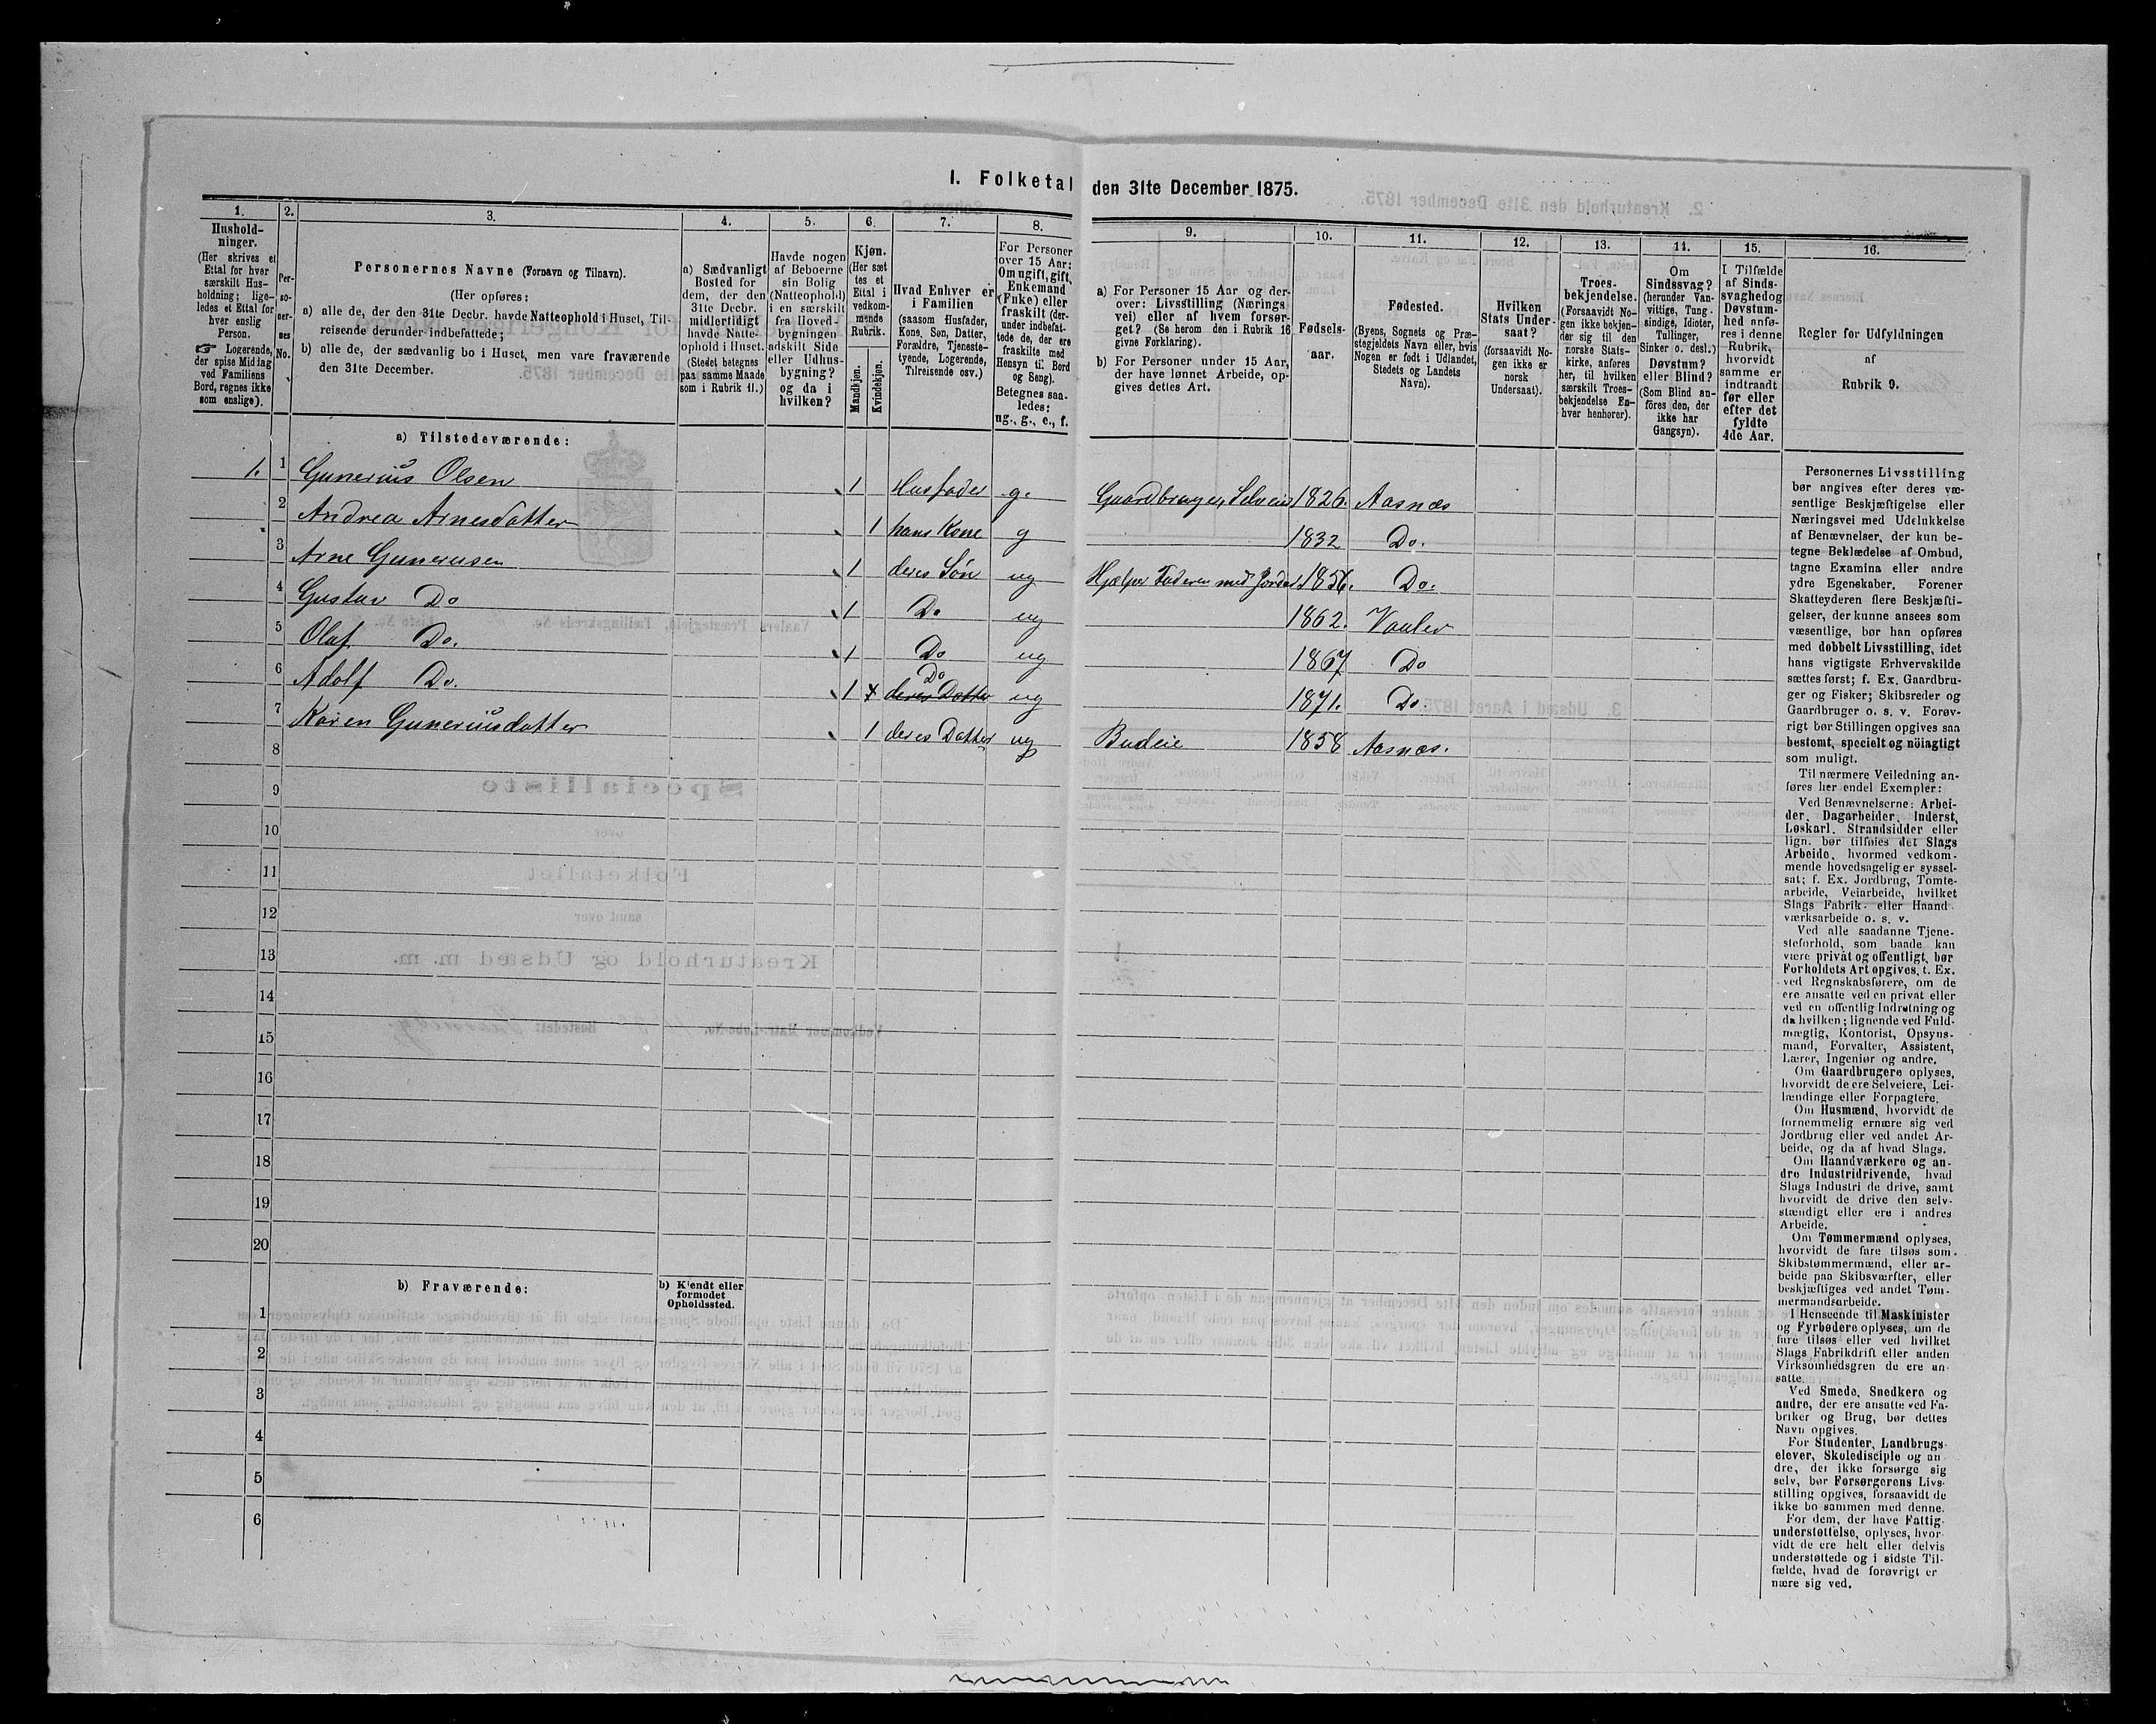 I. Folketal den 31te December 1875.
1. 2. 3. 4. 5. 6. 7. 8. 9. 10. 11. 12. 13. 14. 15. 16.
Hushold-
ninger.
(Her skrives et
Ettal for hver
særskilt Hus-
holdning; lige-
ledes et Ettal for
hver enslig
Person.
☞ Logerende,
der spise Middag
ved Familiens
Bord, regnes ikke
som enslige).
Per-
so-
ner-
nes
No.
Personernes Navne (Fornavn og Tilnavn).
(Her opføres:
a) alle de, der den 31te Decbr. havde Natteophold i Huset, Til-
reisende derunder indbefattede;
b) alle de, der sædvanlig bo i Huset, men vare fraværende
den 31te December.
a) Sædvanligt
Bosted for
dem, der den
31te Decbr.
midlertidigt
havde Natte-
ophold i Huset.
(Stedet betegnes
paa samme Maade
som i Rubrik 11.)
Havde nogen
af Beboerne
sin Bolig
(Natteophold)
i en særskilt
fra Hoved-
bygningen
adskilt Side
eller Udhus-
bygning?
og da i
hvilken?
Kjøn.
(Her sæt
tes et
Ettal i
vedkom-
mende
Rubrik.
Mandkjøn.
Kvindekjøn.
Hvad Enhver er
i Familien
(saasom Husfader,
Kone, Søn, Datter,
Forældre, Tjeneste-
tyende, Logerende,
Tilreisende osv.)
For Personer
over 15 Aar:
Om ugift, gift,
Enkemand
(Enke) eller
fraskilt (der-
under indbefat-
tede de, der ere
fraskilte med
Hensyn til Bord
og Seng).
Betegnes saa-
ledes:
ug., g., e., f.
a) For Personer 15 Aar og der-
over: Livsstilling (Nærings
vei) eller af hvem forsør-
get? (Se herom den i Rubrik 16
givne Forklaring).
b) For Personer under 15 Aar,
der have lønnet Arbeide, op-
gives dettes Art.
Fødsels-
aar.
Fødested.
(Byens, Sognets og Præ-
stegjeldets Navn eller, hvis
Nogen er født i Udlandet,
Stedets og Landets
Navn).
Hvilken
Stats Under-
saat?
(forsaavidt No-
gen ikke er
norsk
Undersaat).
Troes-
bekjendelse.
(Forsaavidt No-
gen ikke bekjen-
der sig til den
norske Stats-
kirke, anføres
her, til hvilken
særskilt Troes-
bekjendelse En-
hver henhører).
Om
Sindssvag?
(herunder Van-
vittige, Tung-
sindige, Idioter,
Tullinger,
Sinker o. desl.)
Døvstum?
eller Blind?
(Som Blind an-
føres den, der
ikke har
Gangsyn).
I Tilfælde
af Sinds-
svaghed og
Døvstum-
hed anfø-
res i denne
Rubrik,
hvorvidt
samme er
indtraadt
før eller
efter det
fyldte
4de Aar.
Regler for Udfyldningen
af
Rubrik 9.
a) Tilstedeværende:
1. 1 Gunerius Olsen 1 Husfader g. Gaardbruger, Selveier 1826. Aasnæs
2 Andrea Arnesdatter 1 hans Kone g 1832 Do.
3 Arne Gunerusen 1 deres Søn ug Hjælper Faderen med Jordar. 1856. Do.
4 Gustav Do 1 Do ug 1862. Vaaler
5 Oluf Do. 1 Do ug 1867 Do
6 Adolf Do. 1 Do deres Datter ug 1871. Do
7 Karen Guneriusdatter 1 deres Datter ug Budeie 1858 Aasnæs.
8
9
10
11
12
13
14
15
16
17
18
19
20
b) Fraværende:
b) Kjendt eller
formodet
Opholdssted.
1
2
3
4
5
6
Personernes Livsstilling
bør angives efter deres væ-
sentlige Beskjæftigelse eller
Næringsvei med Udelukkelse
af Benævnelser, der kun be-
tegne Beklædelse af Ombud,
tagne Examina eller andre
ydre Egenskaber. Forener
Skatteyderen flere Beskjæfti-
gelser, der kunne ansees som
væsentlige, bør han opføres
med dobbelt Livsstilling, idet
hans vigtigste Erhvervskilde
sættes først; f. Ex. Gaardbru-
ger og Fisker; Skibsreder og
Gaardbruger o. s. v. Forøv-
rigt bør Stillingen opgives saa
bestemt, specielt og nöiagtigt
som muligt.
Til nærmere Veiledning an-
føres her endel Exempler:
Ved Benævnelserne: Arbei-
der, Dagarbeider, Inderst,
Løskarl, Strandsidder eller
lign. bør tilføies det Slags
Arbeide, hvormed vedkom-
mende hovedsagelig er syssel-
sat; f. Ex. Jordbrug, Tomte-
arbeide, Veiarbeide, hvilket
Slags Fabrik- eller Haand
værksarbeide o. s. v.
Ved alle saadanne Tjene-
steforhold, som baade kan
være privat og offentligt, bør
Forholdets Art opgives, t. Ex.
ved Regnskabsførere, om de
ere ansatte ved en privat eller
ved en offentlig Indretning og
da hvilken; lignende ved Fuld-
mægtig, Kontorist, Opsyns-
mand, Forvalter, Assistent,
Lærer, Ingeniør og andre.
Om Gaardbrugere oplyses,
hvorvidt de ere Selveiere, Lei-
lændinge eller Forpagtere.
Om Husmænd, hvorvidt de
fornemmelig ernære sig ved
Jordbrug eller ved andet Ar-
beide, og da af hvad Slags.
Om Haandværkere og an-
dre Industridrivende, hvad
Slags Industri de drive, samt
hvorvidt de drive den selv-
stændigt eller ere i andres
Arbeide.
Om Tømmermænd oplyses,
hvorvidt de fare tilsøs som
Skibstømmermænd, eller ar-
beide paa Skibsværfter, eller
beskjæftiges ved andet Tøm-
mermandsarbeide.
I Henseende til Maskinister
og Fyrbødere oplyses, om de
fare tilsøs eller ved hvilket
Slags Fabrikdrift eller anden
Virksomhedsgren de ere an-
satte.
Ved Smede, Snedkere og
andre, der ere ansatte ved Fa-
briker og Brug, bør dettes
Navn opgives.
For Studenter, Landbrugs-
elever, Skoledisciple og an-
dre, der ikke forsørge sig
selv, bør Forsørgerens Livs-
stilling opgives, forsaavidt de
ikke bo sammen med denne.
For dem, der have Fattig-
understøttelse, oplyses, hvor-
vidt de ere helt eller delvis
understøttede og i sidste Til-
fælde, hvad de forøvrigt er
nære sig ved.